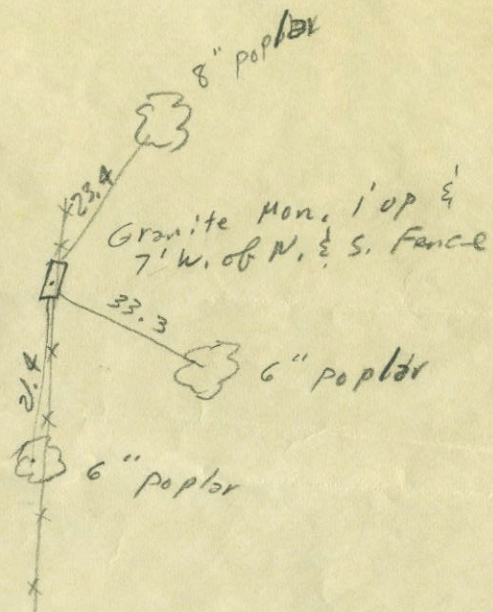 8" poplar
23.4
Granite Mon. 1' up &
7' W. of N. & S. Fence
33.3
6" poplar
21.4
6" poplar